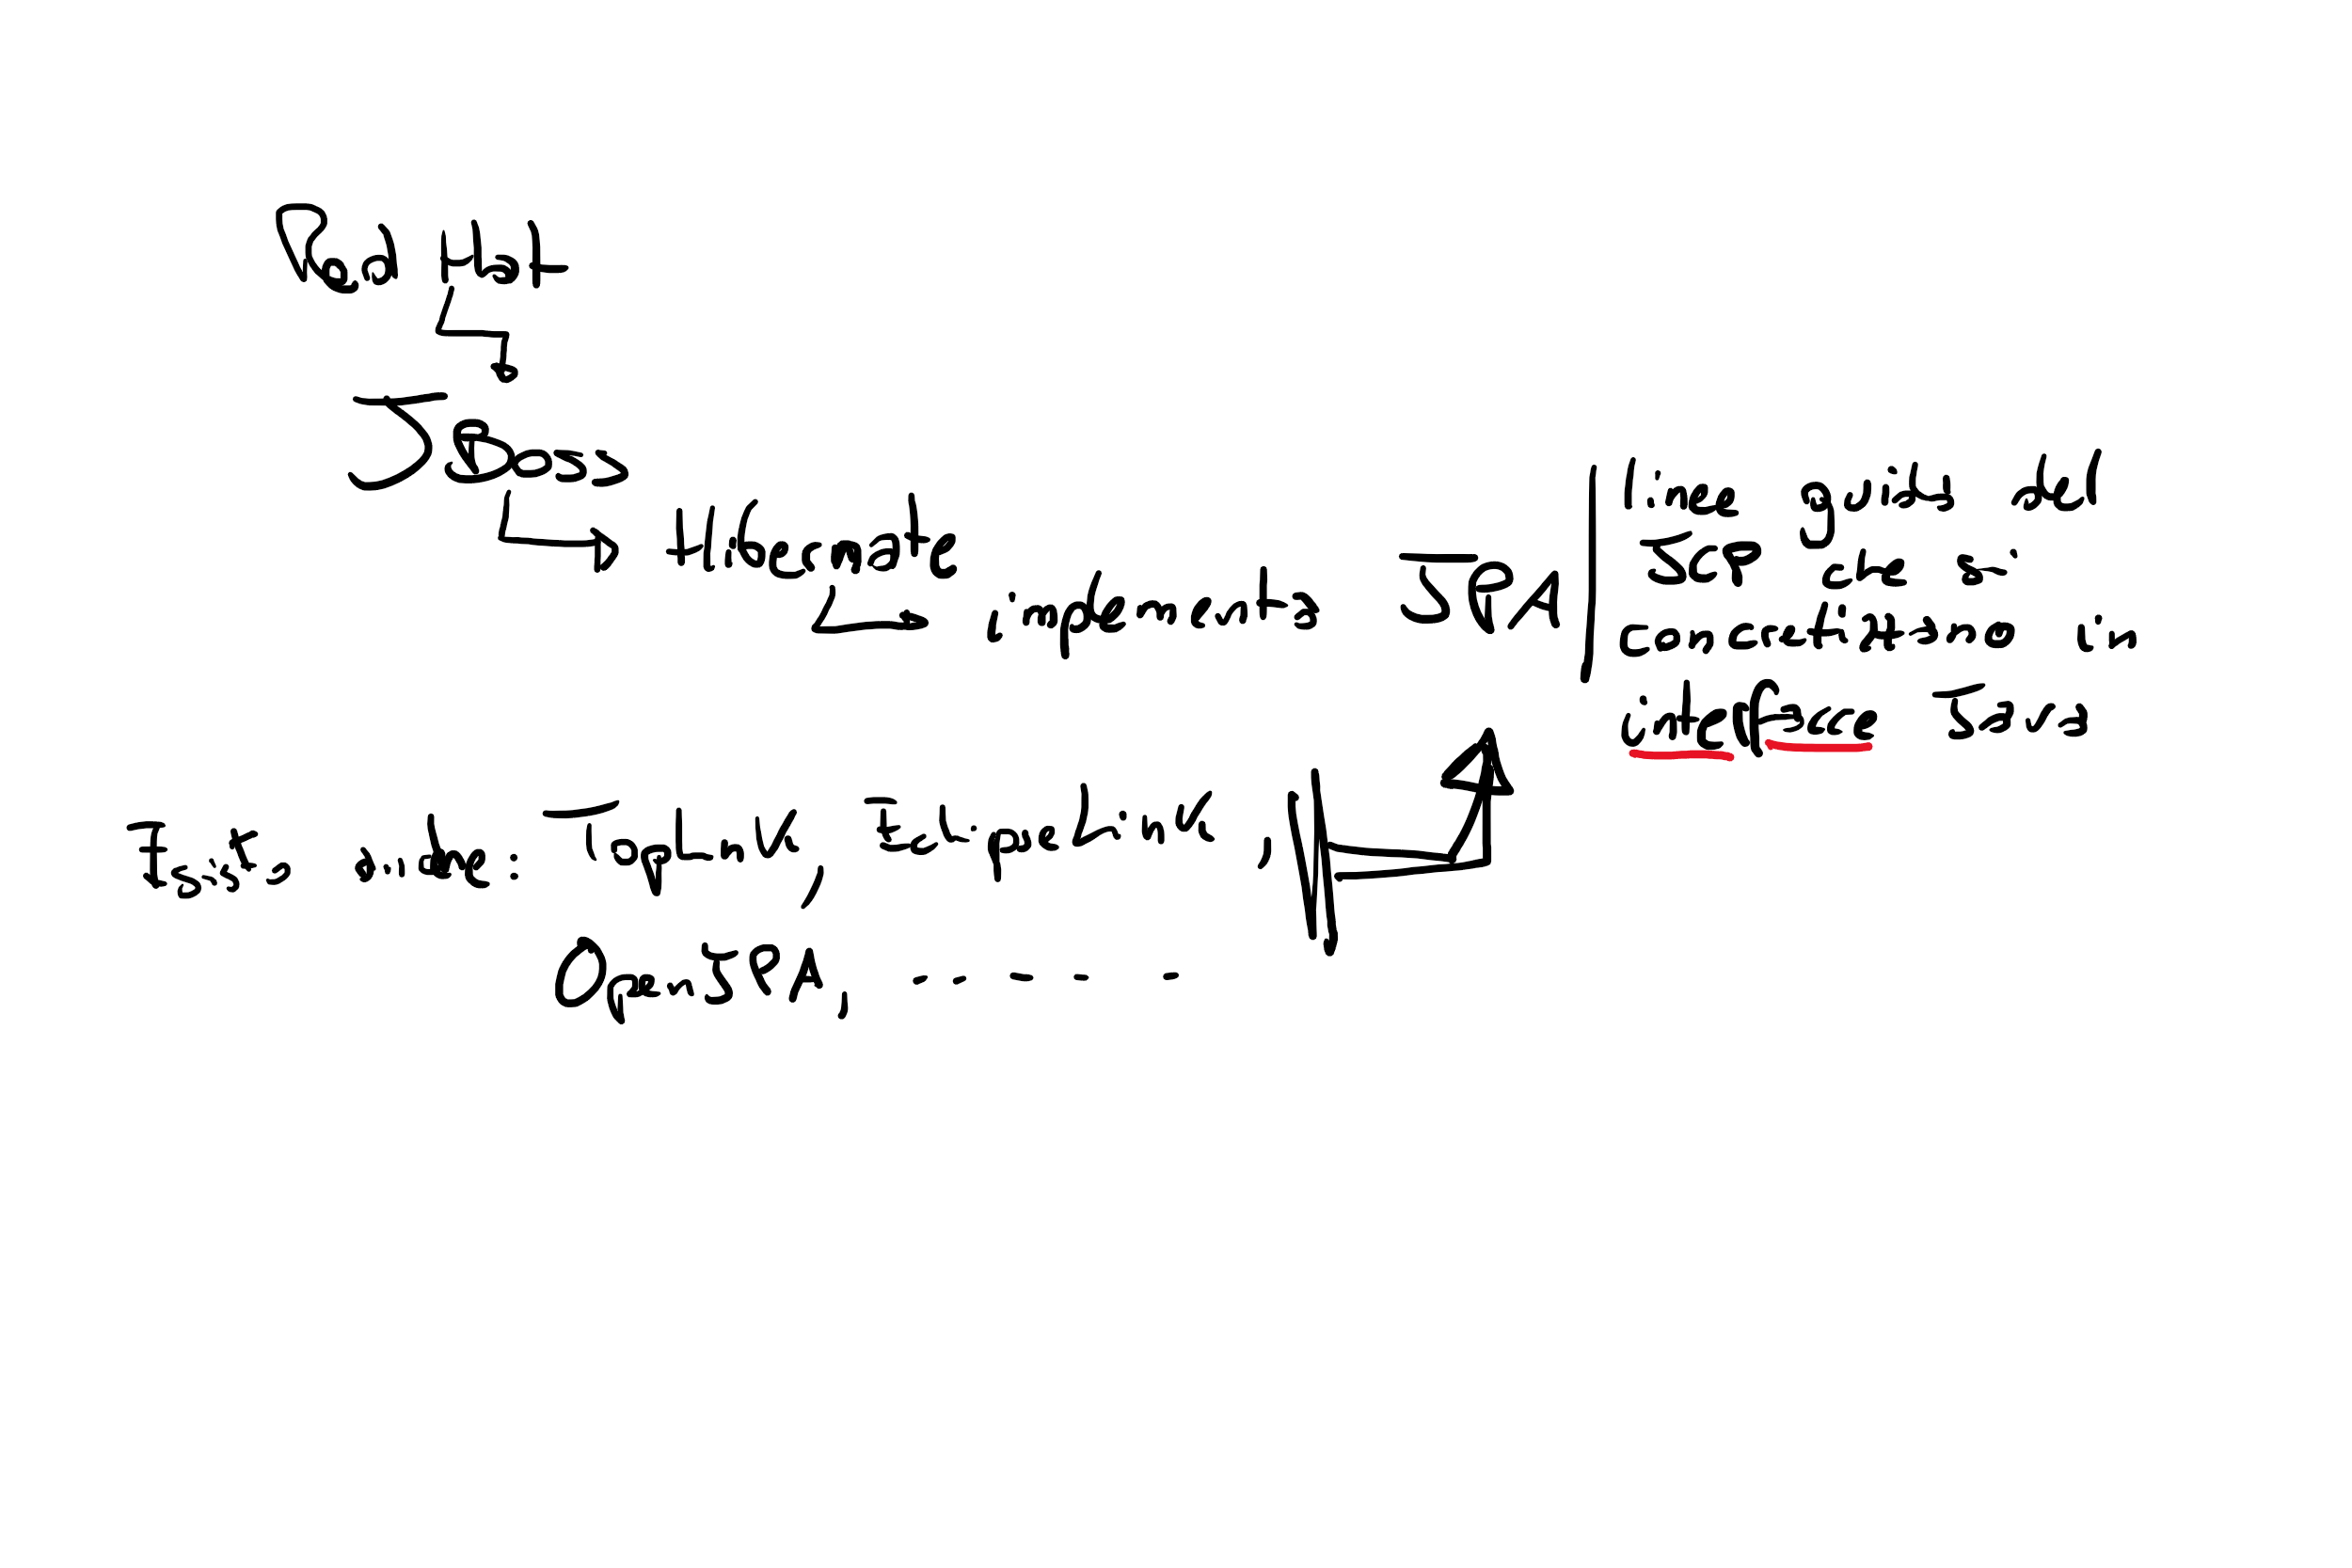 Red Hat
JBoss
Hibernate
implements JPA
linee guida del
JCP che si
concretizzano in
interfacce Java
Esiste anche: Toplink, Eclipselink,
OpenJPA, .....